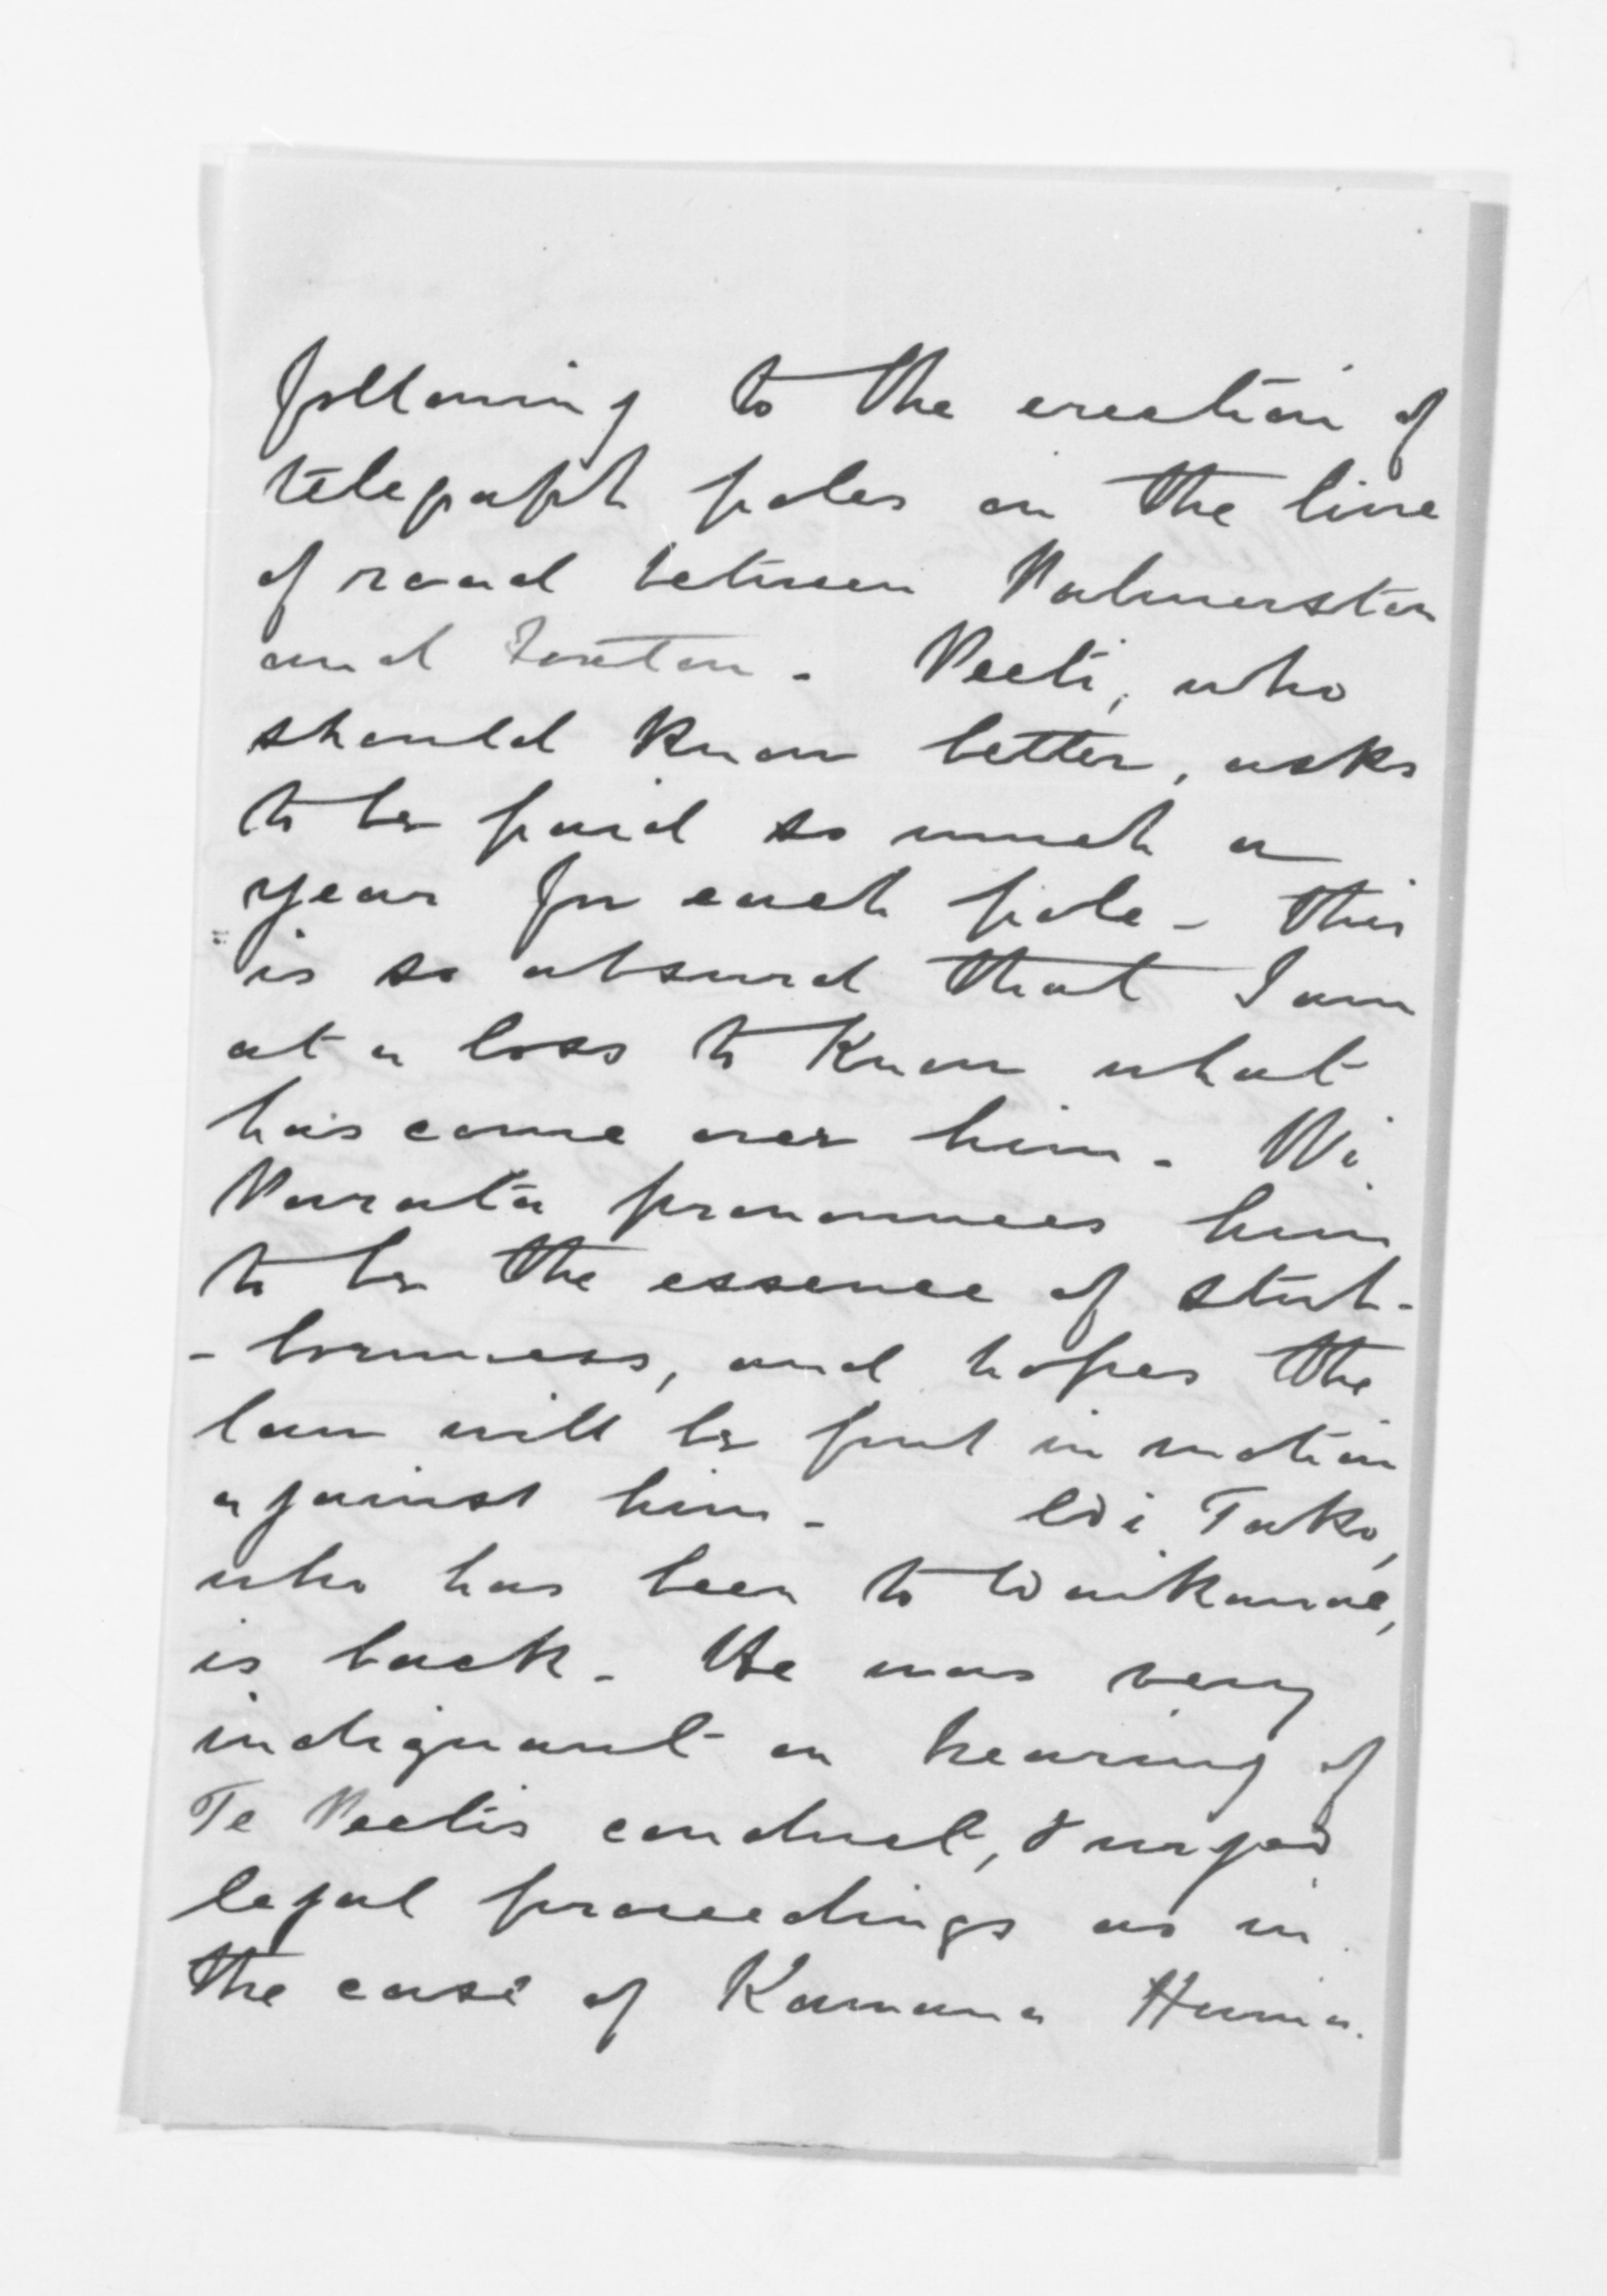 following to the erection of
telegraph poles on the line
of road between Palmerston
and Foxton - Peeti, who
should know better, asks
to be paid so much a
year for each pole - this
is so absurd that I am
at a loss to know what
has come over him - Wi
Parata pronounces him
to be the essence of stub-
-bornness, and hopes the
law will be put in motion
against him - Wi Tako,
who has been to Waikanae,
is back - He was very
indignant on hearing of
Te Peetis conduct, & urged
legal proceedings as in
the case of Kamana Huma.